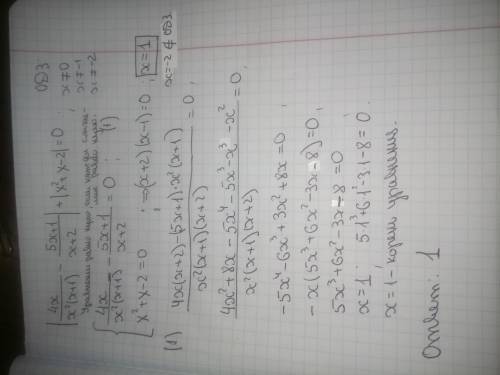 | 4x / x²(x+1) − 5x+1 / x+2 | + |x²+x−2| = 0 ;
ОДЗ
x≠0
x≠−1
x≠−2
Уравнение равно нулю если каждое слагаемое равно нулю.
{ 4x / x²(x+1) − 5x+1 / x+2 = 0 ; (1)
x²+x−2=0 ; ⇒ (x+2)(x−1)=0 ; x=1
x=−2 ∉ ОДЗ
(1) 4x(x+2)−(5x+1)·x²(x+1) / x²(x+1)(x+2) = 0 ;
4x²+8x−5x⁴−5x³−x³−x² / x²(x+1)(x+2) = 0 ;
−5x⁴−6x³+3x²+8x=0 ;
−x(5x³+6x²−3x−8)=0 ;
5x³+6x²−3x−8=0
x=1 : 5·1³+6·1²−3·1−8=0.
x=1 − корень уравнения.
Ответ: 1